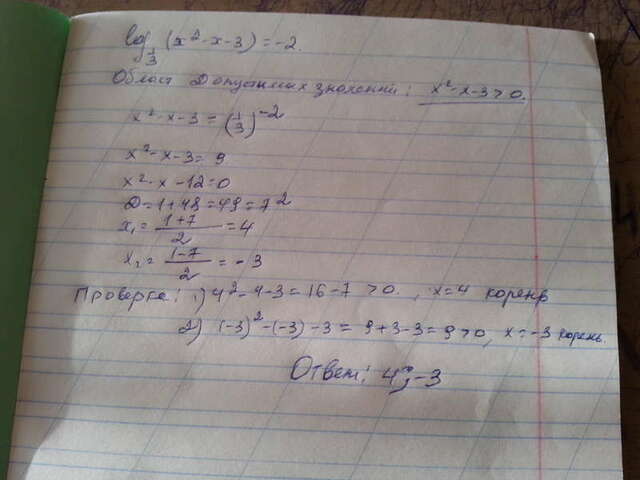 log_{1/3} (x² - x - 3) = -2.
Област Допустимых значений: x² - x - 3 > 0.
x² - x - 3 = (1/3)^{-2}
x² - x - 3 = 9
x² - x - 12 = 0
D = 1 + 48 = 49 = 7²
x₁ = (1+7)/2 = 4
x₂ = (1-7)/2 = -3
Проверка: 1) 4² - 4 - 3 = 16 - 7 > 0, x = 4 корень
2) (-3)² - (-3) - 3 = 9 + 3 - 3 = 9 > 0, x = -3 корень.
Ответ: 4; -3